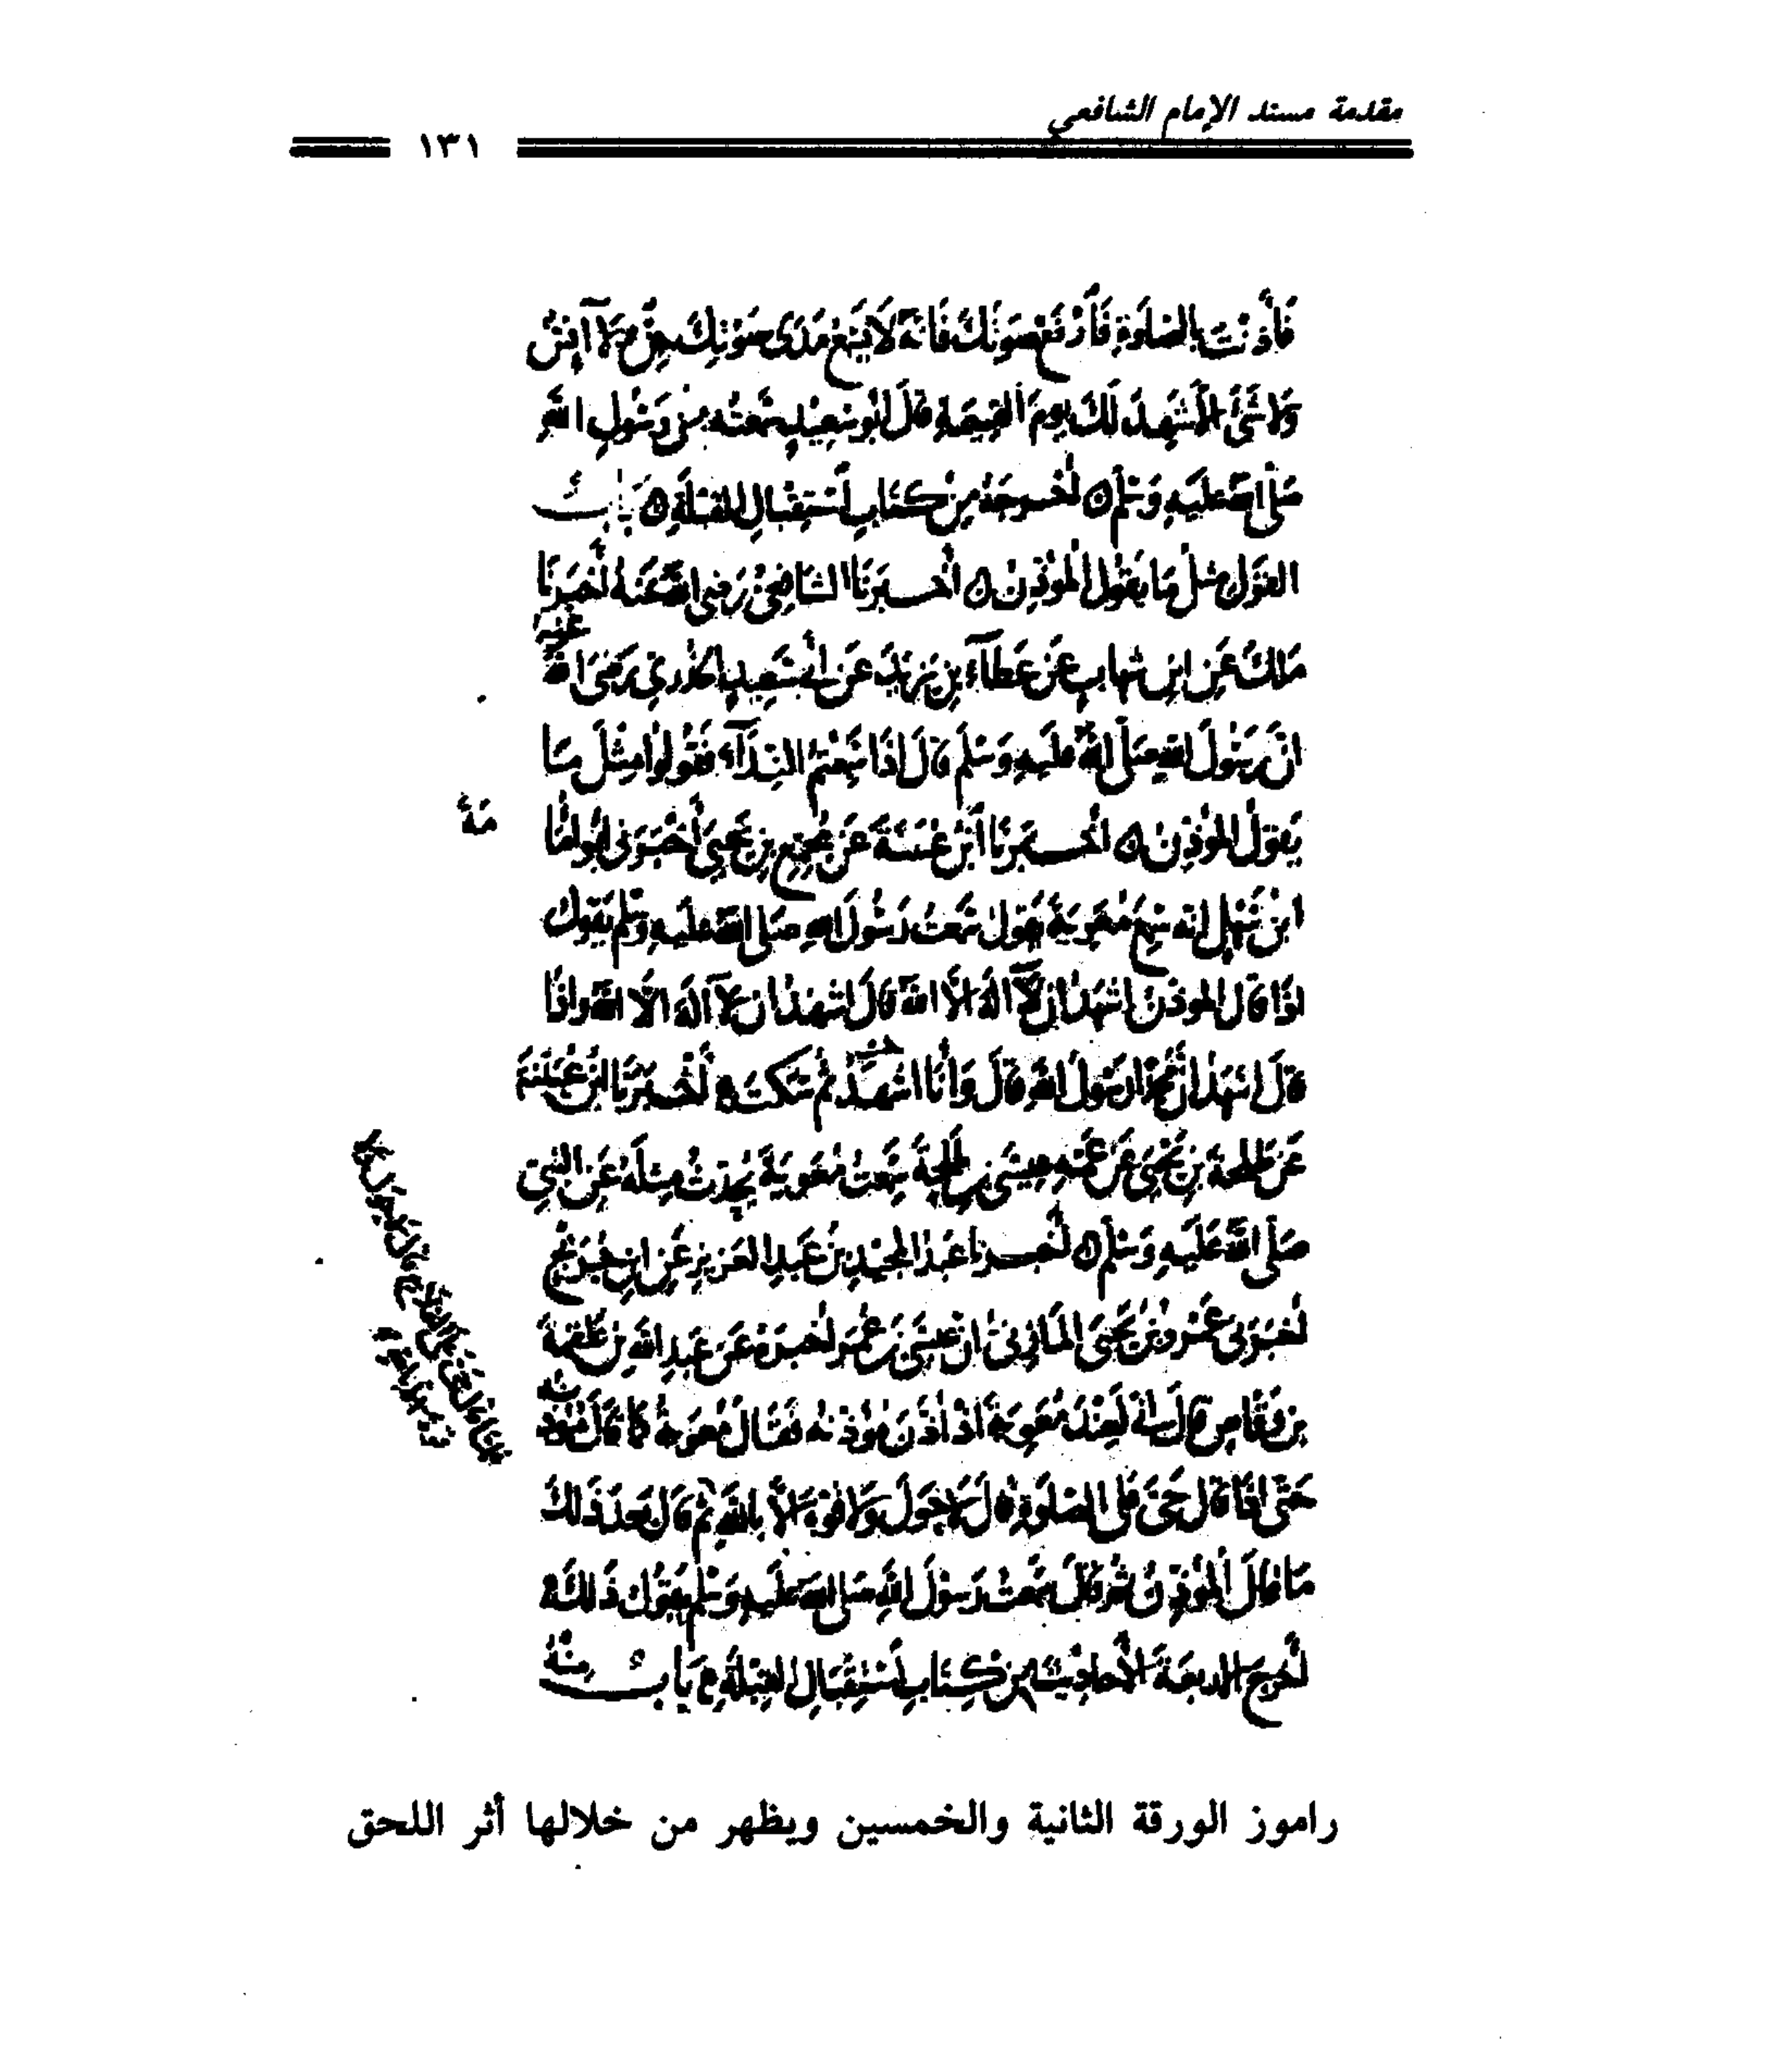 مقدمة مسند الإمام الشافعي
١٣١
فَأَذَّنْتَ بِالصَّلَوةِ فَأَرْفَعْ صَوْتَكَ فَانَّهُ لَا يَسْمَعُ مَدَى صَوْتِكَ جِنٌّ وَلَا اِنْسٌ
وَلَا شَىْءٌ اِلَّا شَهِدَ لَكَ يَومَ القِيمَةِ قَالَ اَبُو سَعِيْدٍ سَمِعْتُه مِنْ رَسُولِ اللهِ
صَلَّى الله عَليَهِ وَسَلَّم ن أَخْرجَهُ مِنْ كتَابِ اَسْتِقْبَالِ القبْلَةِ ن بَابُ
القَوَل مثل مَا يَقوُل اَلموُذِنُ ن أخْبَرَنَا الشَافِعِىُّ رَضِىَ الله عَنهُ أَخْبَرَنَا
مَالكٌ عَنِ ابنِ شهَابٍ عَنْ عَطَآءِ بنِ يَزيْدَ عَن ابِى سَعِيدٍ الخُدرِىِّ رَضىَ الله عَنهُ
انَّ رَسُولَ اللهِ صَلَى اللهُ عَليَهِ وَسَلَّمَ قَالَ اذَا سَمِعْتُمُ النِدَآءَ فَقُولُوا مِثْلَ مَا
يَقولُ الموُذِنُ ن اَخْبَرنَا اَبْن عُيَيْنَةَ عَنْ مُجَمِّعِ بنِ يَحْيَى أَخْبَرَنى ابُو امَامَةَ
ابْنُ سَهْلٍ انَّه سَمِعَ مُعَوِيَةَ يَقوُل سَمِعْتُ رَسُولَ اللهِ صَلى الله عَليَهِ وَسَلم يَقوُل
اذَا قَالَ الموذنُ اشهَدُ ان لَّا الهَ الَّا الله قَالَ اشهَدُ ان لَّا الَه الَّا الله وَاذَا
قَالَ اشهَدُ انَّ مُحَمَّدًا رَسَولُ اللهِ قَالَ وَأَنَا اشهَدُ ثُم سَكَتَ ه أَخْبَرنَا ابْنُ عُيَيْنَةَ
عَن طَلحَةَ بنِ يَحْيىَ عَنْ عَمِّه عِيسَى بنِ طَلحَةَ سَمِعْتُ مُعَوِيَةَ يُحَدثُ مِثلَهُ عَنِ النَّبِىِّ
صَلَّى اللهُ عَلَيَهِ وَسَلَّم ن أَخْبَرنا عَبْدُ المجيْدِ بنُ عَبدِ العَزيزِ عَنِ ابنِ جُرَيْجٍ
اَخْبَرَنى عَمْرُو بنُ يَحْيىَ المَازِنىُّ انَّ عيسَى بنَ عُمَرَ اَخبَرَهُ عَن عَبدِ اللهِ بنِ عَلقمَةَ
بنِ وَقَّاصٍ قَالَ انِّى لَعِنْدَ مُعَوِيَةَ اذْ اذَّنَ مُؤذنُه فَقَالَ مُعَويَةُ كَمَا قَالَ مُؤذنُه
حَتَّى اذَا قَالَ حَىَّ عَلَى الصَلَوةِ قَالَ لَا حَوَلَ وَلَا قوُةَ اِلَّا باللهِ ثمَّ قَالَ بَعدَ ذَلكَ
مَا قَالَ اَلمُؤذِنُ ثُمَّ قَالَ سَمِعتُ رَسوُلَ اللهِ صَلى الله عَليهِ وَسَلم يَقوُل ذَلكَ ه
اَخْرَجَ الاربعَةَ الأَحَادِيْثَ مِن كتَابِ اَستِقْبَالِ القِبْلَةِ ه بَابُ مِنْهُ
راموز الورقة الثانية والخمسين ويظهر من خلالها أثر اللحق